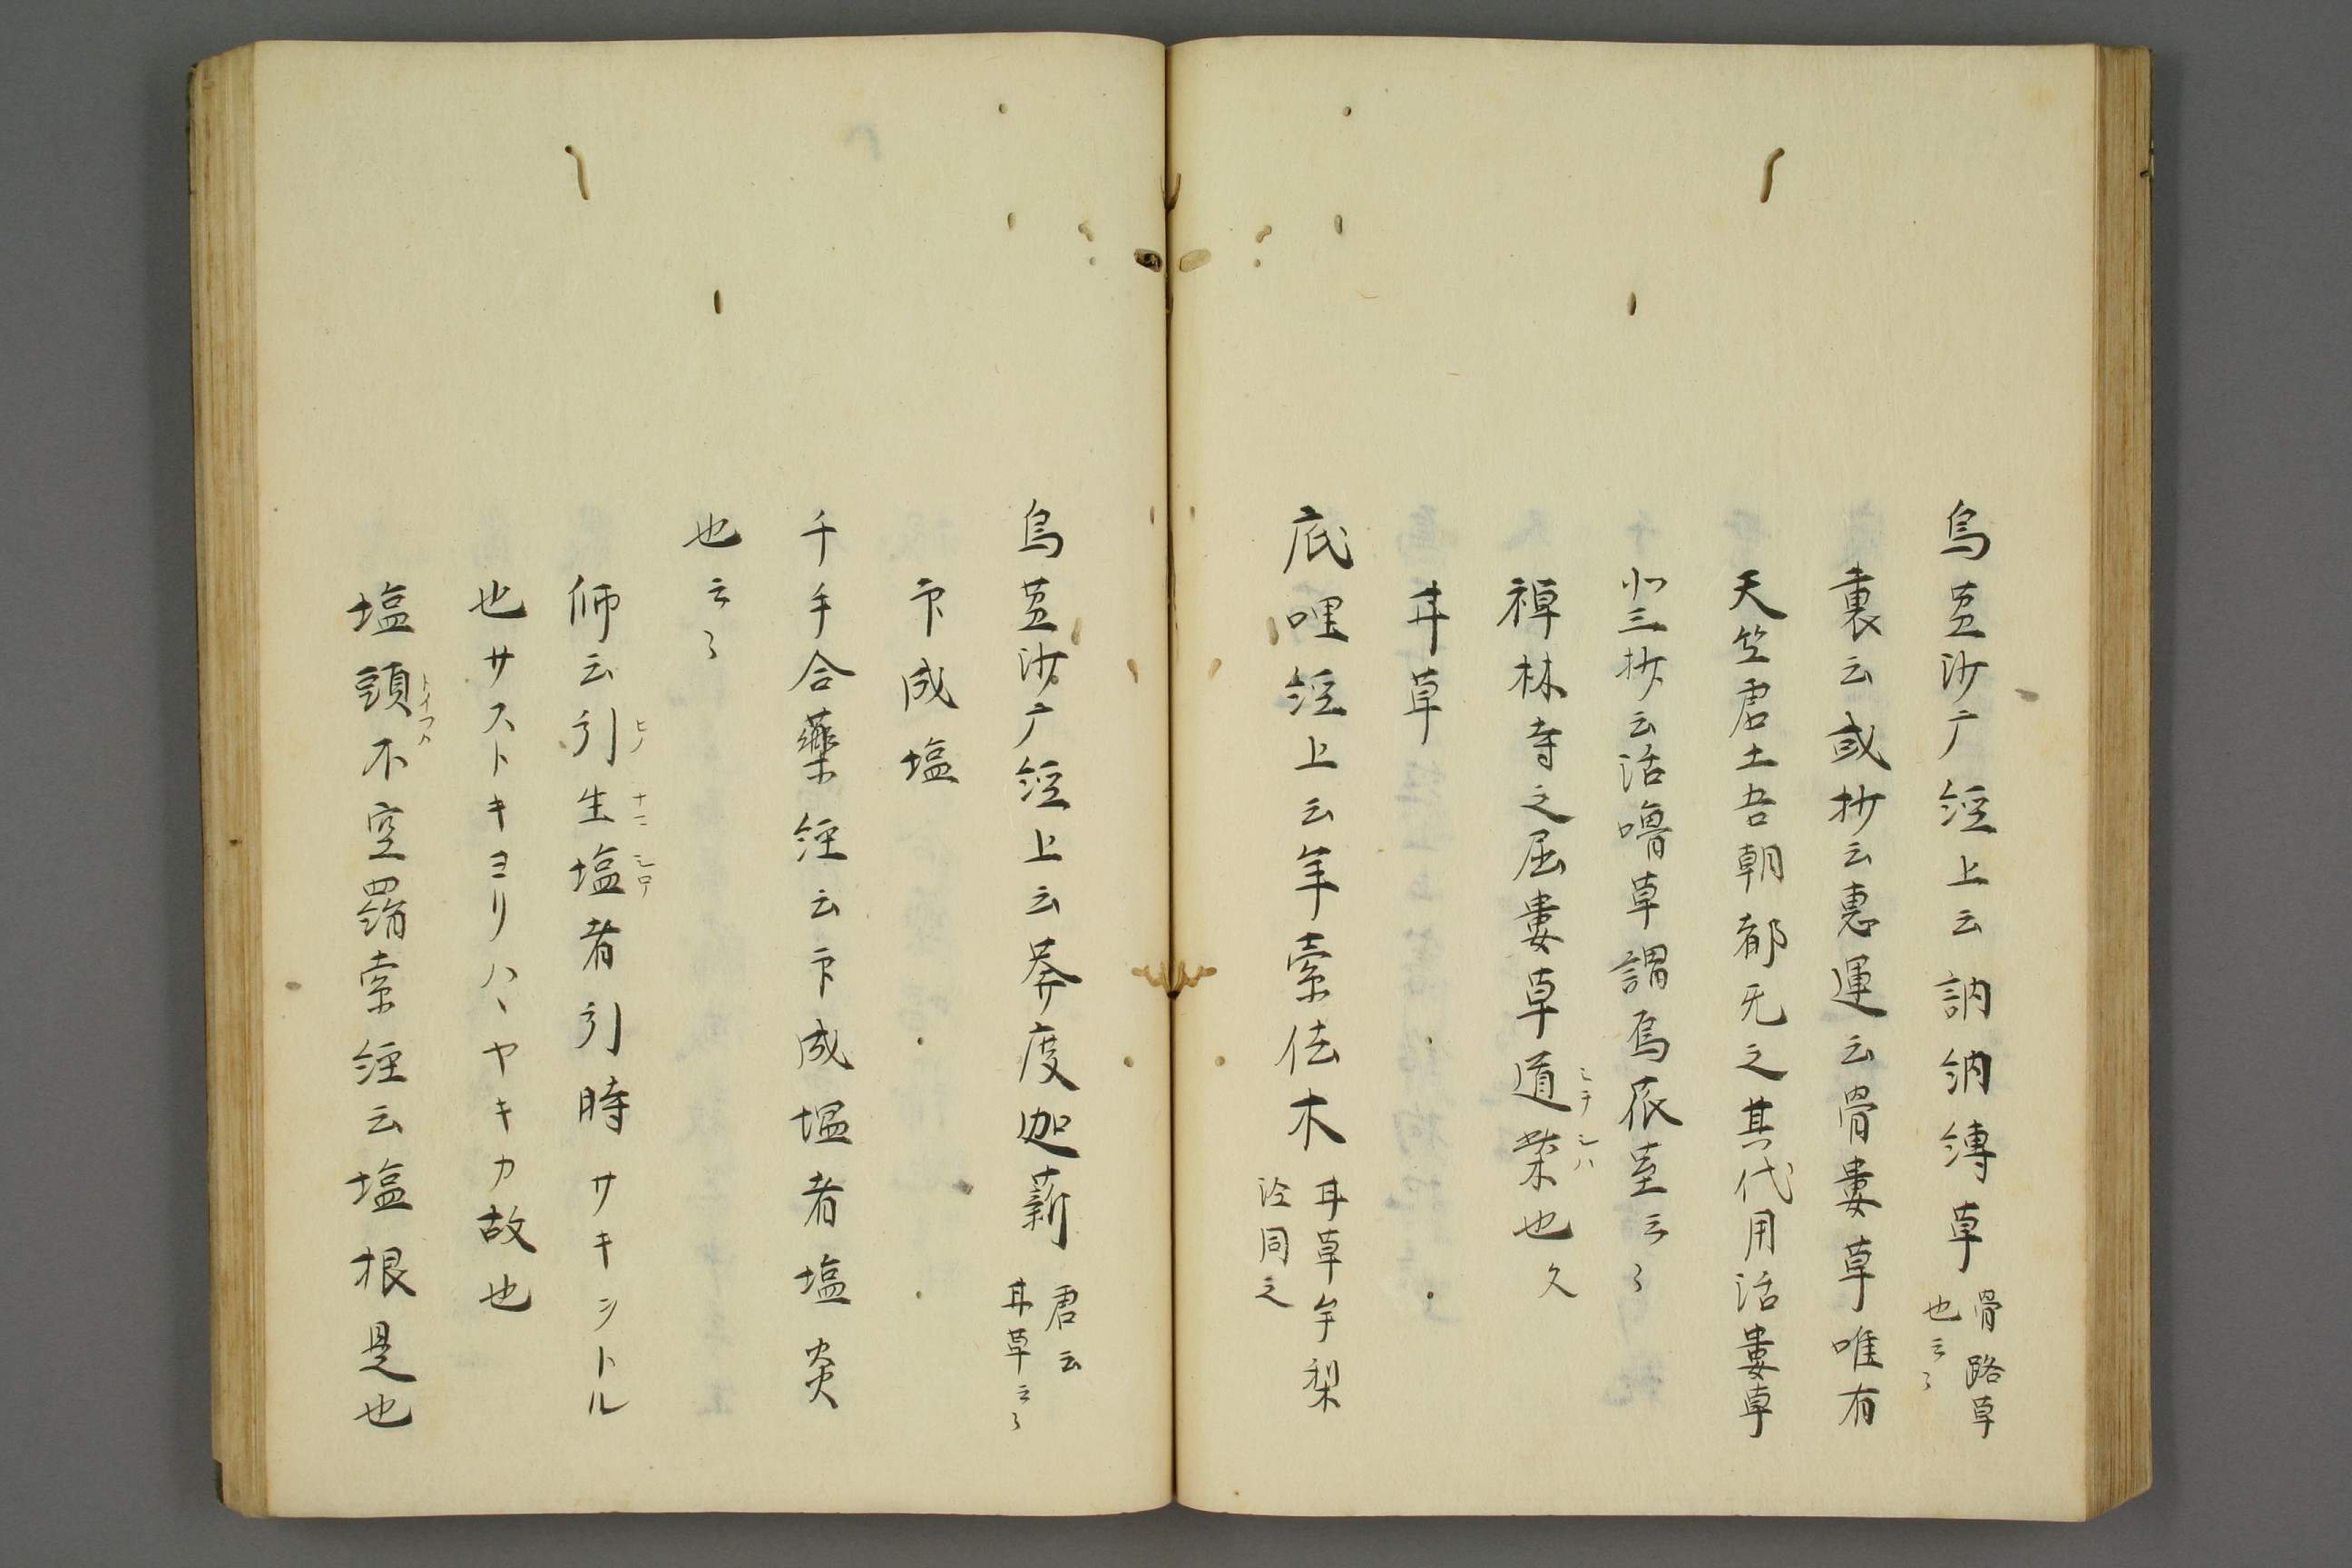 烏蒭沙广経上云訥納縛草骨路草也云々
裏云或抄云惠運云骨婁草唯有
天竺君土吾朝都无之其代用活婁草
小三抄云活嚕草謂烏蔭草云々
禅林寺之屈婁草道柴也久
井草
底哩経上云羊索佉木井草牟梨経同之
烏蒭沙广経上云莽度迦薪君云井草云々
卞成塩
千手合藥経云卞成塩者塩炎
也云々
師云引生塩者引時サキントル
也サストキヨリハヽヤキカ故也
塩頭トイフハ不空羂索経云塩根是也